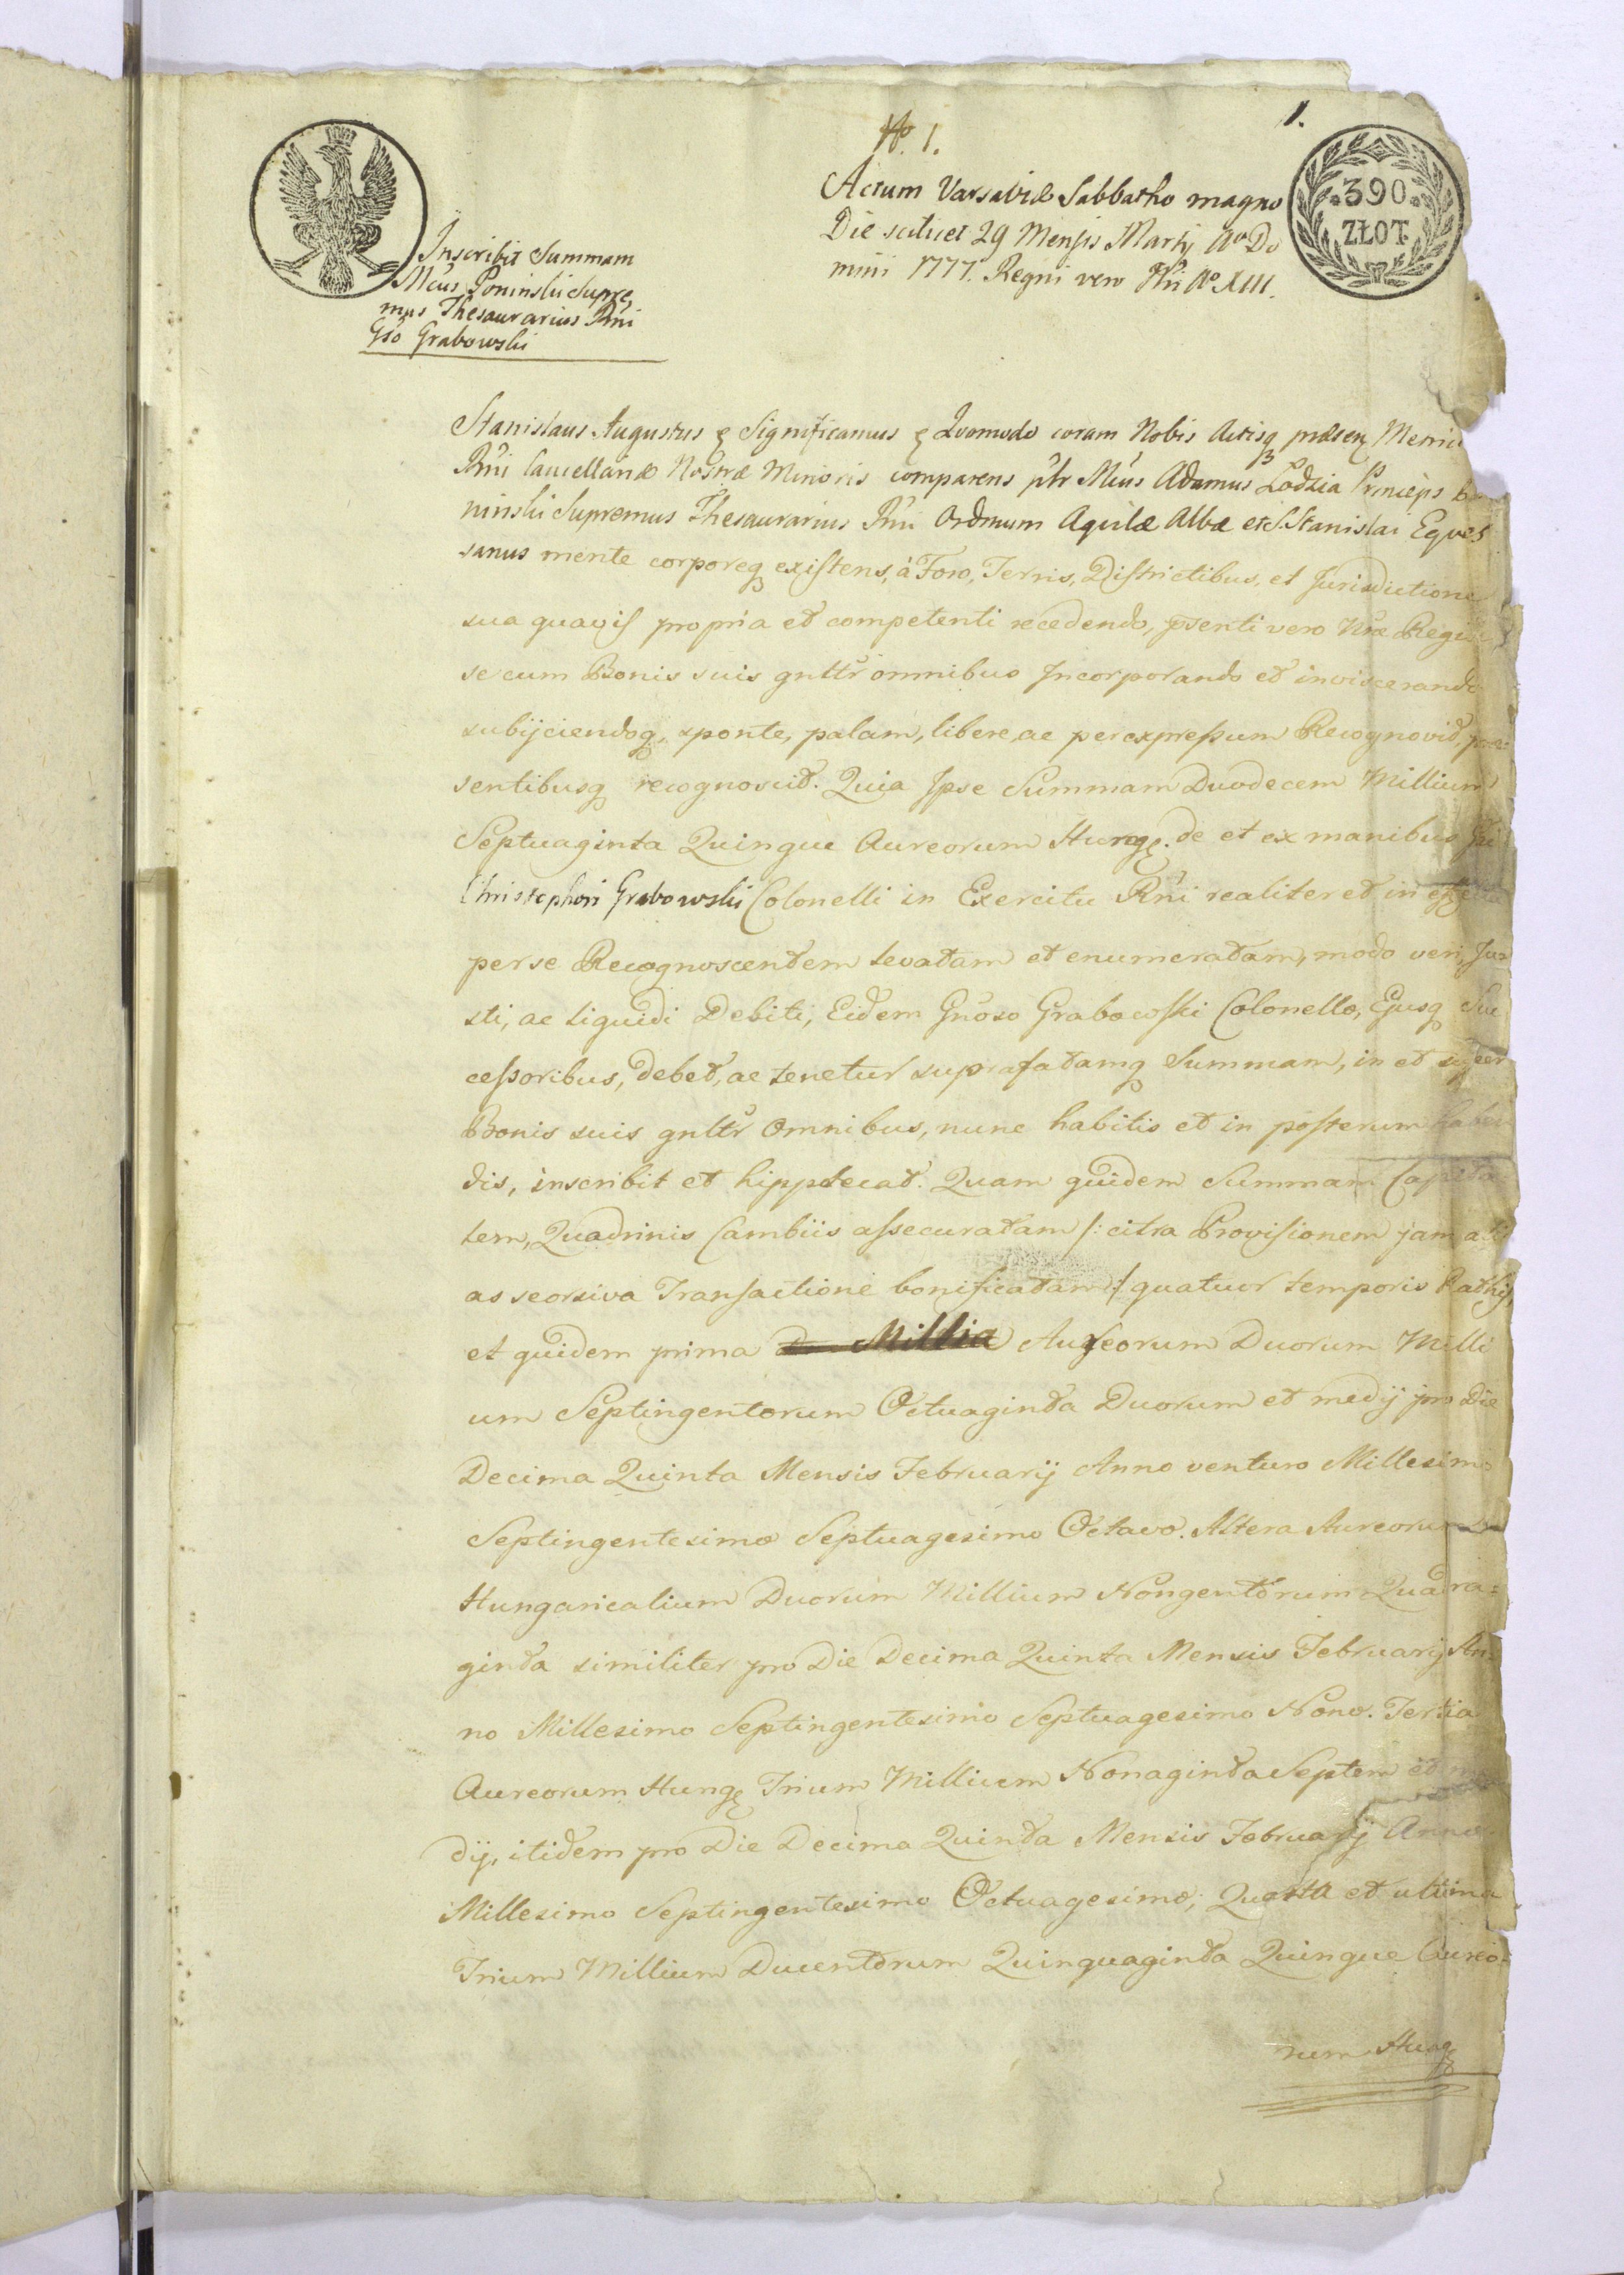 No. 1.
1.
390
ZŁOT.
Actum Varsaviæ Sabbatho magno
Die scilicet 29 Mensis Martij Ao Do
mini 1777. Regni vero Nri Ao XIII.
Inscribit Summam
Mcus Poninski Supre
mus Thesaurarius Rni
Gso Grabowski
Stanislaus Augustus ę Significamus ę Quomodo coram Nobis Actisq præsen
Rni Cancellariæ Nostræ Minoris comparens pltr Mcus Adamus Lodzia Princeps
ninski Supremus Thesaurarius Rni Ordinum Aquilæ Albæ et S. Stanislai Eques
sanus mente corporeq existens, à Foro, Terris, Districtibus, et Jurisdictione
sua quavis propria et competenti recedendo, psenti vero Nræ
se cum Bonis suis gnltr omnibus Incorporando et inviscerando
subijciendoq, sponte, palam, libere, ac per expressum Recognovit, præ
sentibusq recognoscit. Quia Ipse Summam Duodecem Millium
Septuaginta Quinque Aureorum Hungę. de et ex manibus
Christophori Grabowski Colonelli in Exercitu Rni realiter et in
per se Recognoscentem levatam et enumeratam, modo veri, Ju
sti, ac liquidi Debiti, Eidem Gnoso Grabowski Colonello, Ejusq Suc
cessoribus, debet, ac tenetur suprafatamq Summam, in et super
Bonis suis gnltr Omnibus, nunc habitis et in posterum haben
dis, inscribit et hippotecat. Quam quidem Summam Capita
lem, Quadrinis Cambiis assecuratam /: citra Provisionem jam
as seorsiva Transactione bonificatam :/ quatuor temporis Rathis,
et quidem prima Millia Aureorum Duorum Milli
um Septingentorum Octuaginta Duorum et medij pro Die
Decima Quinta Mensis Februarij Anno venturo Millesimo
Septingentesimo Septuagesimo Octavo. Altera Aureorum
Hungaricalium Duorum Millium Nongentorum Quadra=
ginta similiter pro Die Decima Quinta Mensis Februarij An
no Millesimo Septingentesimo Septuagesimo Nono. Tertia
Aureorum Hungę Trium Millium Nonaginta Septem et me
dij, itidem pro Die Decima Quinta Mensis Februarij Anno
Millesimo Septingentesimo Octuagesimo; Quarta et ultima
Trium Millium Ducentorum Quinquaginta Quinque Aureo=
rum Hungę